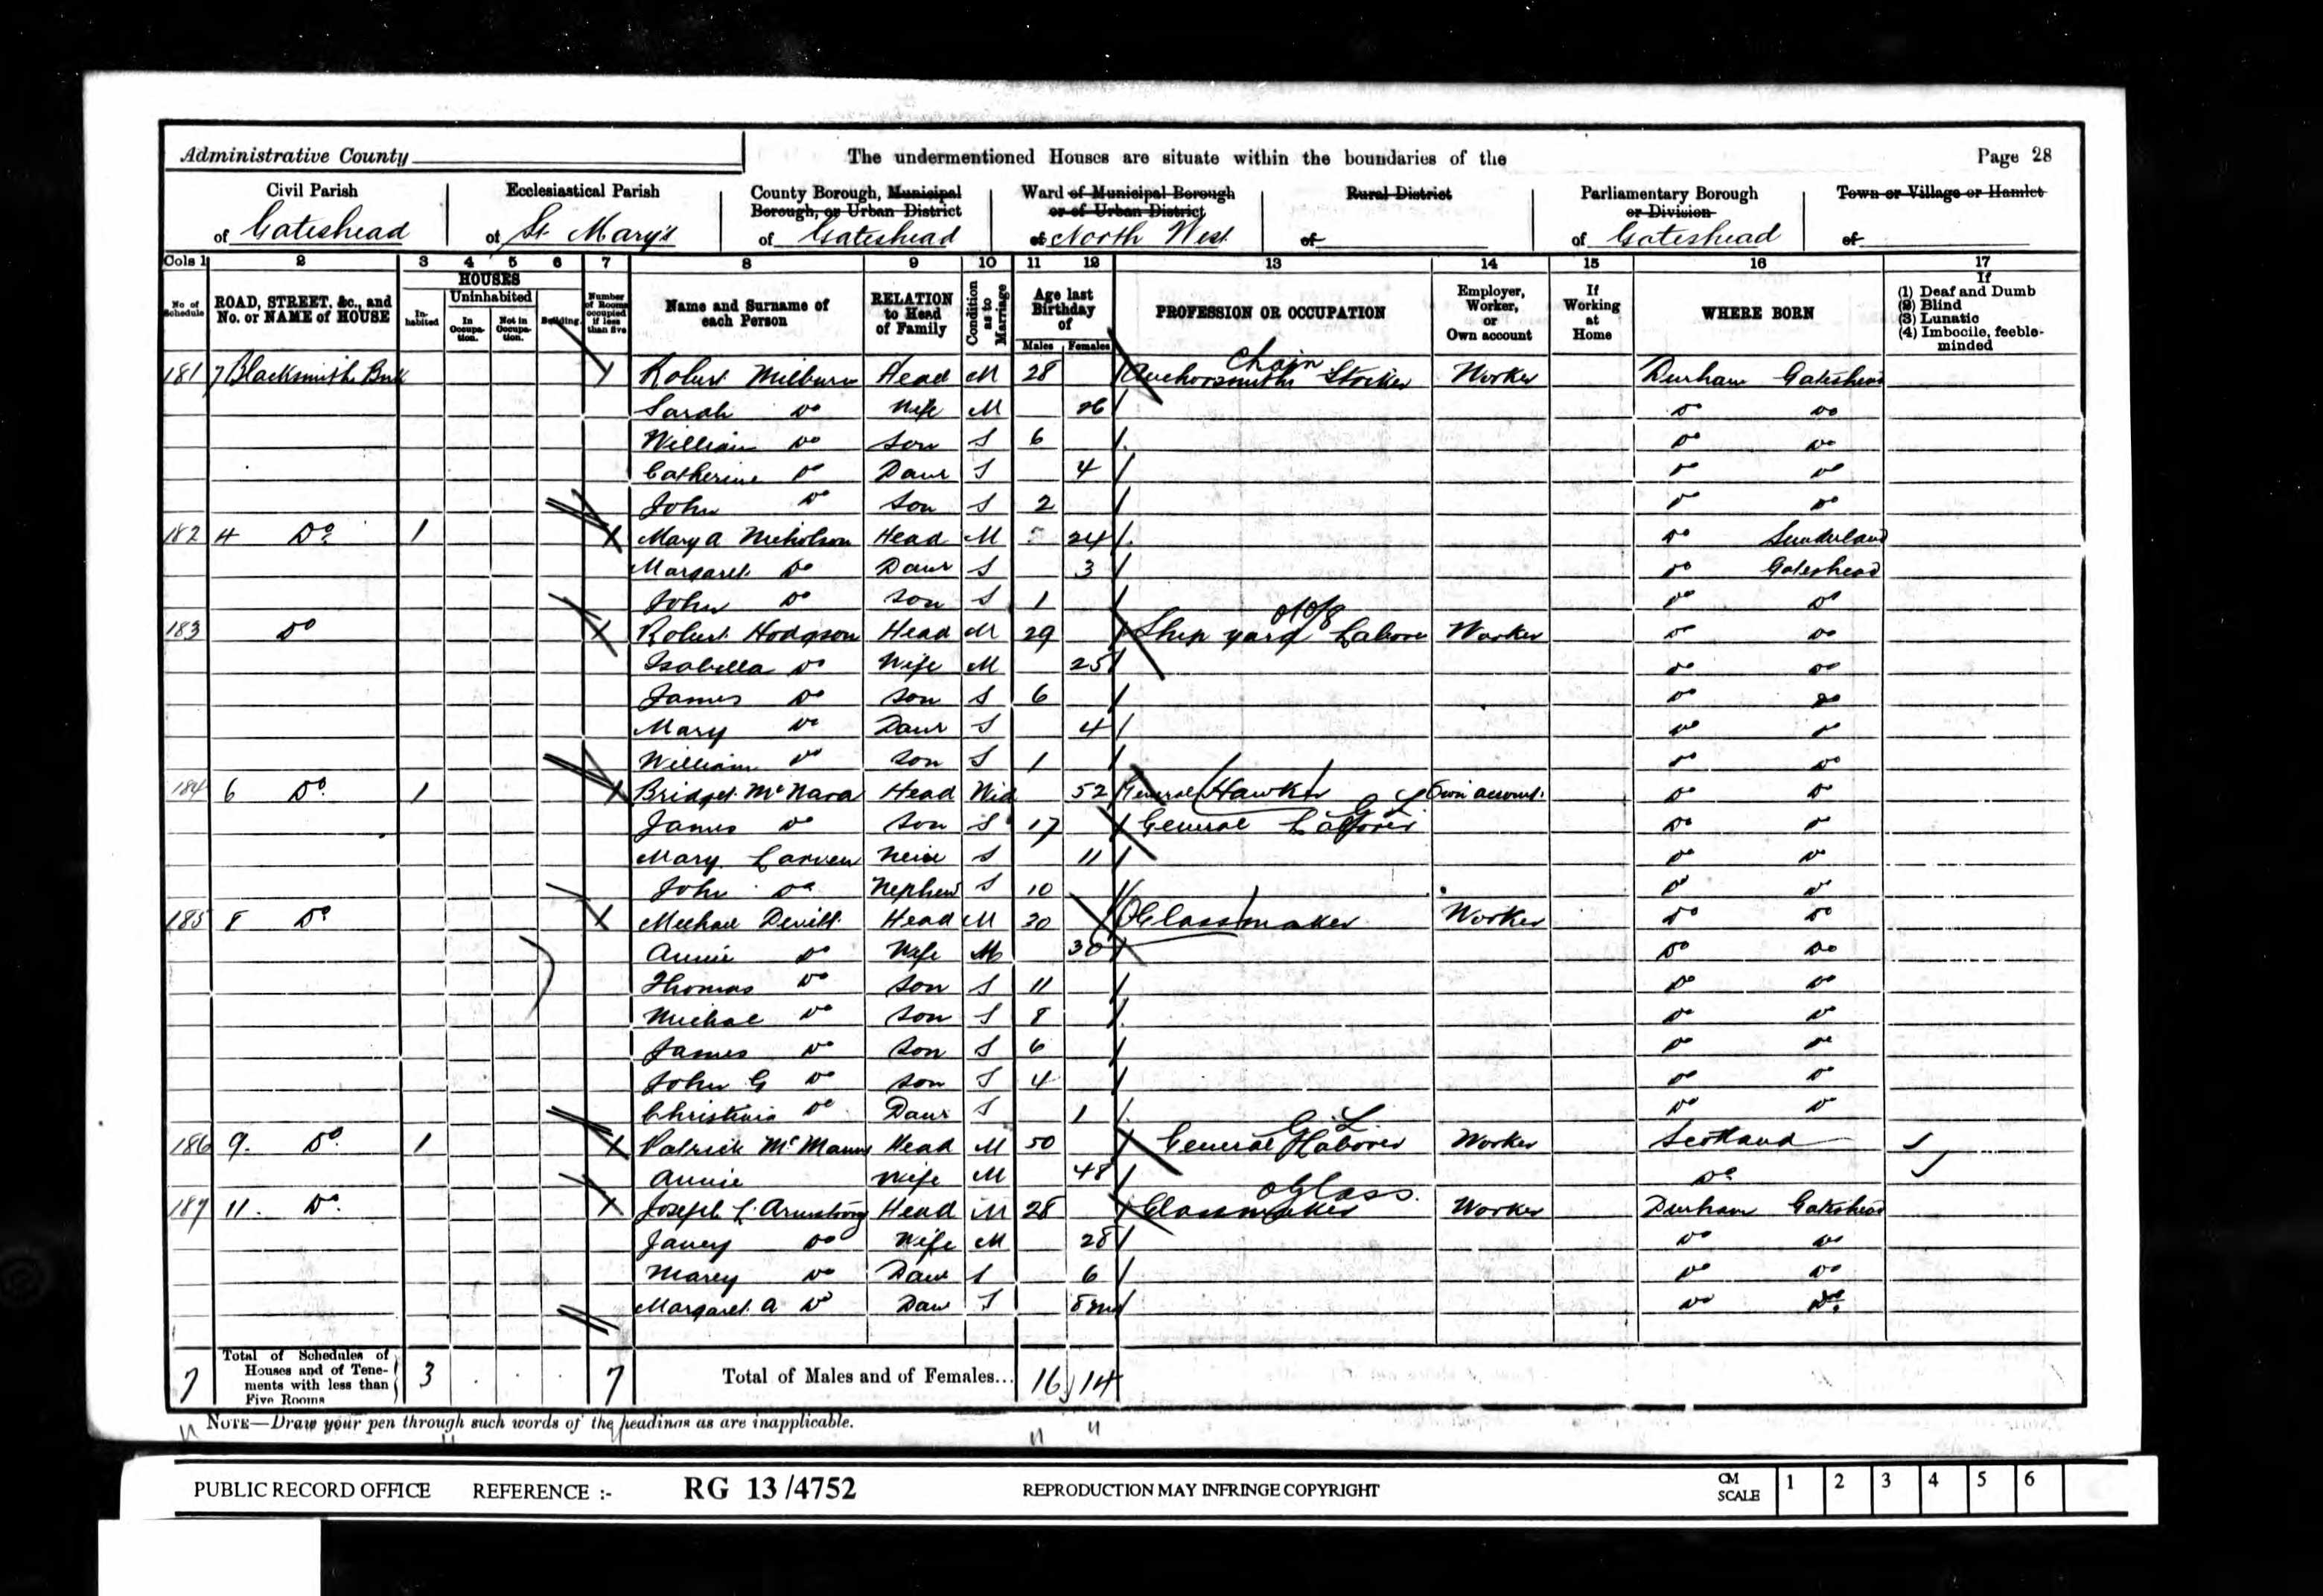 Administrative County
The undermentioned Houses are situate within the boundaries of the
Page 28
Civil Parish of Gateshead
Ecclesiastical Parish of St Mary's
County Borough, Municipal Borough, or Urban District of Gateshead
Ward of Municipal Borough or of Urban District of North West
Rural District of
Parliamentary Borough or Division of Gateshead
Town or Village or Hamlet of
Cols 1 2 3 4 5 6 7 8 9 10 11 12 13 14 15 16 17
No of Schedule
ROAD, STREET, &c., and No. or NAME of HOUSE
HOUSES
In-habited
Uninhabited
In Occupa-tion.
Not in Occupa-tion.
Building.
Number of Rooms occupied if less than five
Name and Surname of each Person
RELATION to Head of Family
Condition as to Marriage
Age last Birthday of
Males Females
PROFESSION OR OCCUPATION
Employer, Worker, or Own account
If Working at Home
WHERE BORN
If
(1) Deaf and Dumb
(2) Blind
(3) Lunatic
(4) Imbecile, feeble-minded
Chain
181 7 Blacksmiths 1 Robert Milburn Head M 28 Anchorsmith Striker Worker Durham Gateshead
Sarah Do Wife M 26 Do Do
William Do Son S 6 Do Do
Catherine Do Daur S 4 Do Do
John Do Son S 2 Do Do
182 4 Do 1 1 Mary A Nicholson Head M 24 Do Sunderland
Margaret Do Daur S 3 Do Gateshead
John Do Son S 1 Do Do
183 Do 1 Robert Hodgson Head M 29 Ship yard Labore Worker Do Do
Isabella Do Wife M 25 Do Do
James Do Son S 6 Do Do
Mary Do Daur S 4 Do Do
William Do Son S 1 Do Do
184 6 Do 1 1 Bridget McNara Head Wid 52 General Hawker Own account Do Do
G L
James Do Son S 17 General Laborer Do Do
Mary Larven Neice S 11 Do Do
John Do Nephew S 10 Do Do
185 8 Do 1 Michael Devitt Head M 30 Glassmaker Worker Do Do
Annie Do Wife M 30 Do Do
Thomas Do Son S 11 Do Do
Michae Do Son S 8 Do Do
James Do Son S 6 Do Do
John G Do Son S 4 Do Do
Christinia Do Daur S 1 Do Do
G. L.
186 9. Do 1 1 Patrick McManus Head M 50 General Laborer Worker Scotland
Annie Wife M 48 Do
Glass.
187 11. Do 1 Joseph L. Armstrong Head M 28 Glassmaker Worker Durham Gateshead
Janey Do Wife M 28 Do Do
Marey Do Daur S 6 Do Do
Margaret A Do Daur S 8 mo Do Do
7 Total of Schedules of Houses and of Tene-ments with less than Five Rooms 3 7 Total of Males and of Females... 16 14
NOTE—Draw your pen through such words of the headings as are inapplicable.
PUBLIC RECORD OFFICE REFERENCE :- RG 13/4752 REPRODUCTION MAY INFRINGE COPYRIGHT CM SCALE 1 2 3 4 5 6